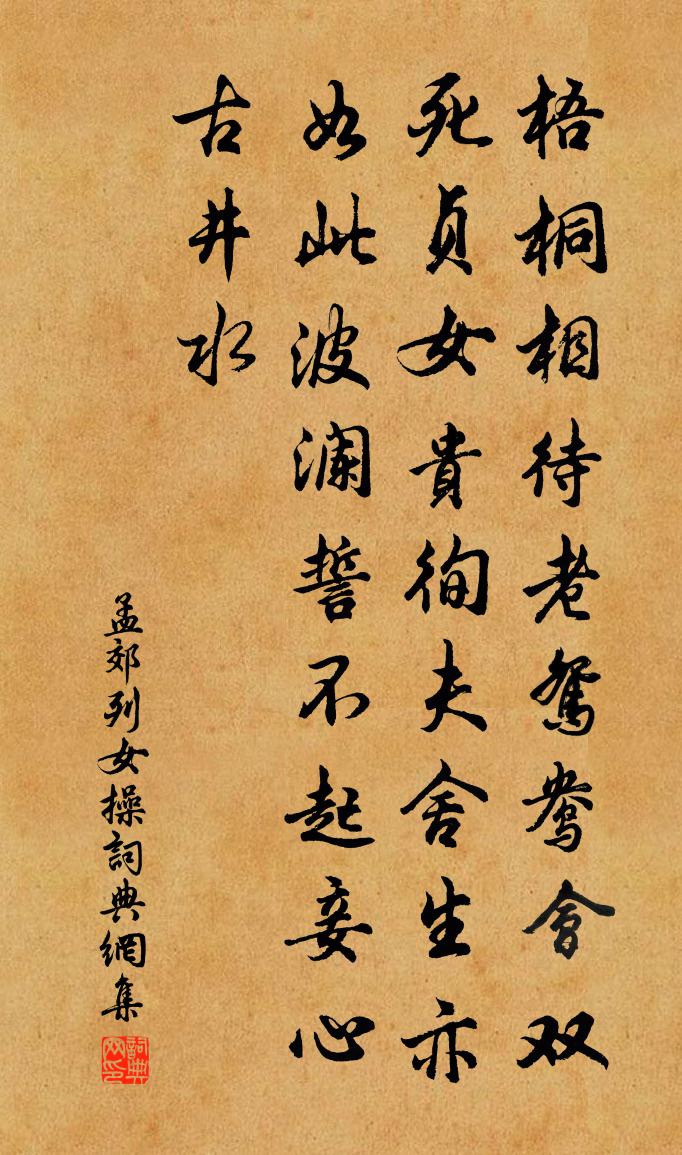 梧桐相待老鸳鸯會双
死貞女貴徇夫舍生亦
如此波澜誓不起妾心
古井水
孟郊列女操詞典網集
詞典网印